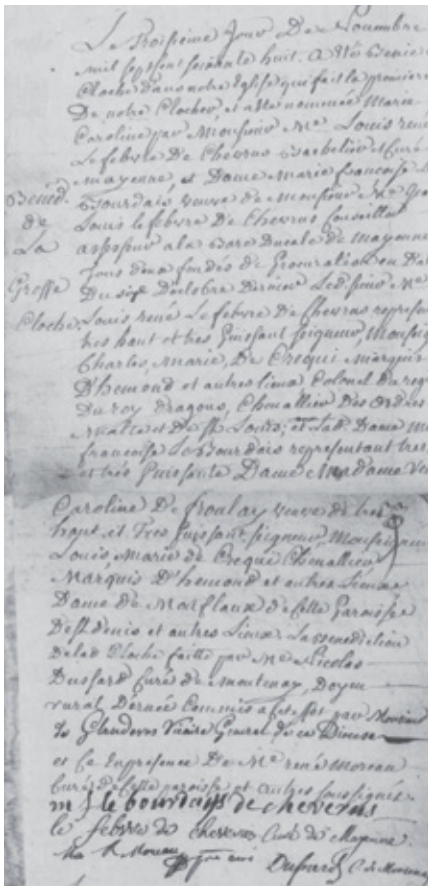 Le Troisieme Jour De Novembre
mil sept sent soixante huit. A été Benie
Cloche dans notre Eglise qui fait la premiere
De notre Clocher, et a été nommée Marie
Caroline par Monsieur Me Louis rené
Le febvre De Cheverus Bachelier et Curé
mayenne, et Dame Marie francoise
Bourdais veuve de Monsieur Me
Louis lefebvre De Cheverus Conseiller
assesseur a la Barre Ducale de Mayenne
tous deux fondés de Procuration en
Du six D'octobre Dernier Ledt sieur Me
Louis rené Le febvre de Cheverus represen
tres haut et tres Puissant seigneur, Monseig
Charles, Marie, De Crequi Marquis
D'hemond et autres lieux Colonel du reg
Du roy dragons, Chevallier Des Ordres
Malte et de St Louis, et Lad. Dame M
francoise Le Bourdais representant tres
et trés Puissante Dame Madame
Benéd.
de
La
Grosse
Cloche.
Caroline De froulay veuve de tres
haut, et Tres Puissant seigneur, Monseigneur
Louis, Marie de Crequi Chevallier
Marquis D'hemond et autres Lieux
Dame de Marflaux de Cette Paroisse
De St denis et autres Lieux La benediction
De lad. Cloche faitte par Me Nicolas
Dufard Curé de Montenay, Doyen
rural D'ernée Commis a cet effet par Monsieur
Vicaire General de ce Diocese
et Ce En presence De Me rené Moreau
Curé de Cette paroisse et autres soussignés.
m f le bourdays de cheverus
le febvre de cheverus Curé de Mayenne.
R Moreau
Dufard C. de Montenay